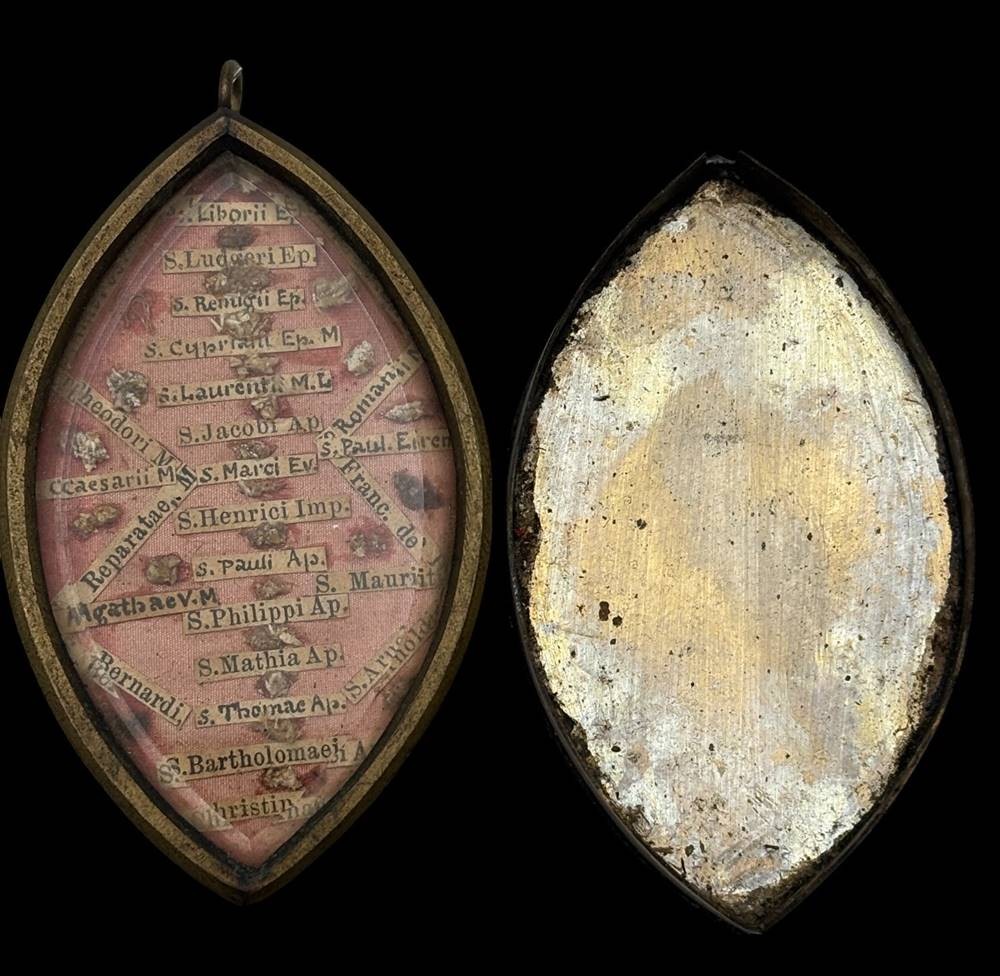 Liborii
S. Ludgeri Ep.
S. Remigii Ep.
S. Cypriani Ep. M
S. Laurentii M. L
Theodori M
S. Romani
S. Jacobi Ap
S. Paul. Erem
Caesarii M
S. Marci Ev.
Franc. de
Reparatae, M
S. Henrici Imp.
S. Pauli Ap.
S. Mauriti
Agathae V. M
S. Philippi Ap.
S. Mathia Ap.
Bernardi,
S. Thomae Ap.
S. Bartholomaei A
Christin